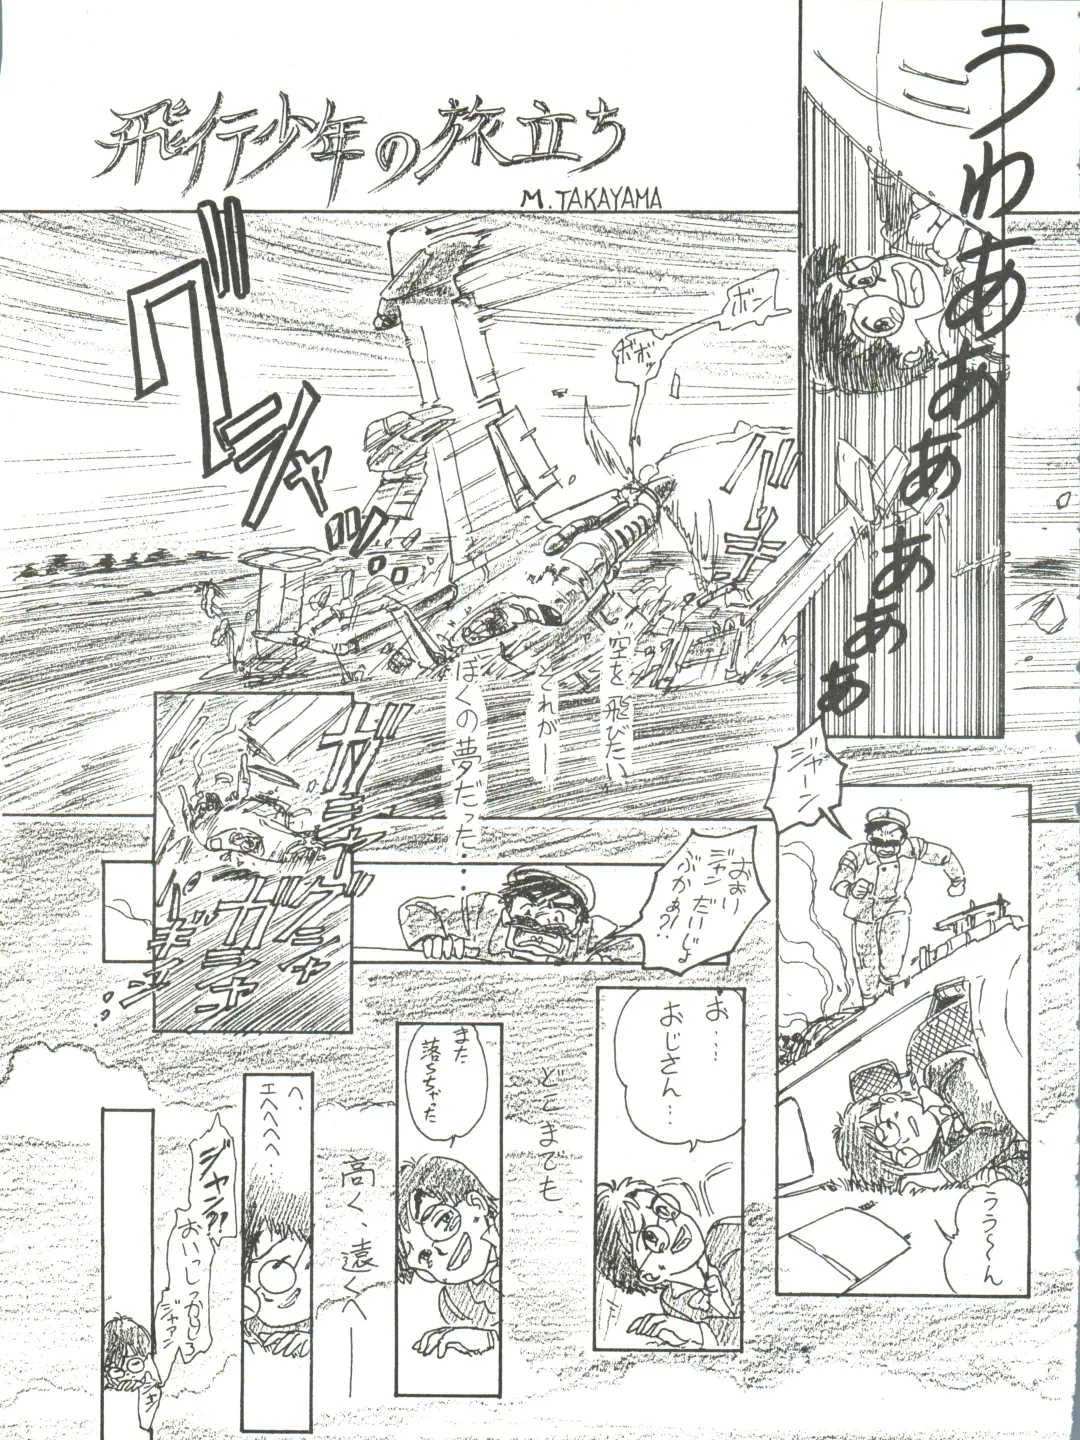 飛行少年の旅立ち
M.TAKAYAMA
うわあああああぁ
ボン
ボボッ
グシャッ
バキ
空を飛びたい
それがー
ぼくの夢だった……
ジャーン
おおい
ジャン だいじょ
ぶかぁ?!
うう〜ん
お…
おじさん…
どこまでも、
また
落っちゃった
高く、遠くへ――
へ、
エヘヘヘヘ…
ジャン?!
おいっしっかりしろ
ジャァン